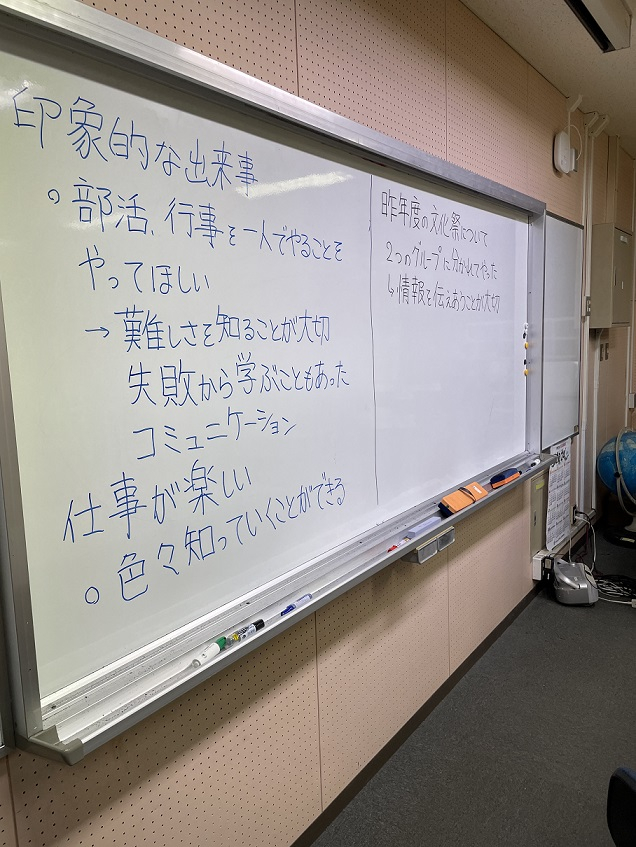 印象的な出来事
○部活、行事を一人でやることを
やってほしい
→難しさを知ることが大切
失敗から学ぶこともあった
コミュニケーション
仕事が楽しい
○色々知っていくことができる
昨年度の文化祭について
2つのグループに分かれてやった
↳情報を伝えあうことが大切